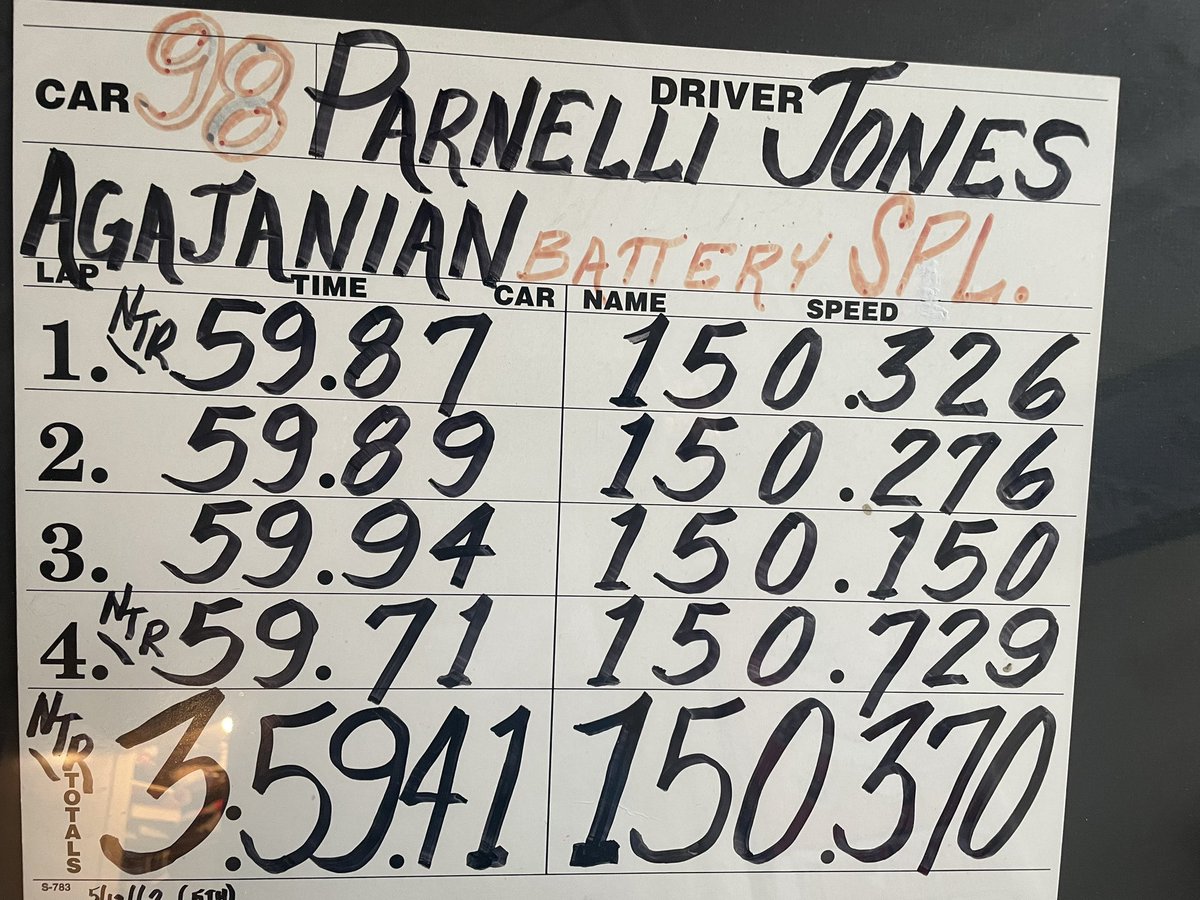 CAR 98 PARNELLI DRIVER JONES
AGAJANIAN BATTERY SPL.
LAP TIME CAR NAME SPEED
1. NTR 59.87 150.326
2. 59.89 150.276
3. 59.94 150.150
4. NTR 59.71 150.729
NTR TOTALS 3:59.41 150.370
S-783
(5TH)